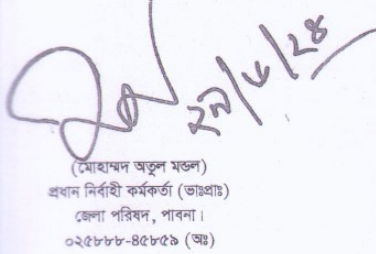 ২৭/৮/২৪
(মোহাম্মদ অতুল মন্ডল)
প্রধান নির্বাহী কর্মকর্তা (ভাঃপ্রাঃ)
জেলা পরিষদ, পাবনা।
০২৫৮৮৮-৪৫৮৫৯ (অঃ)